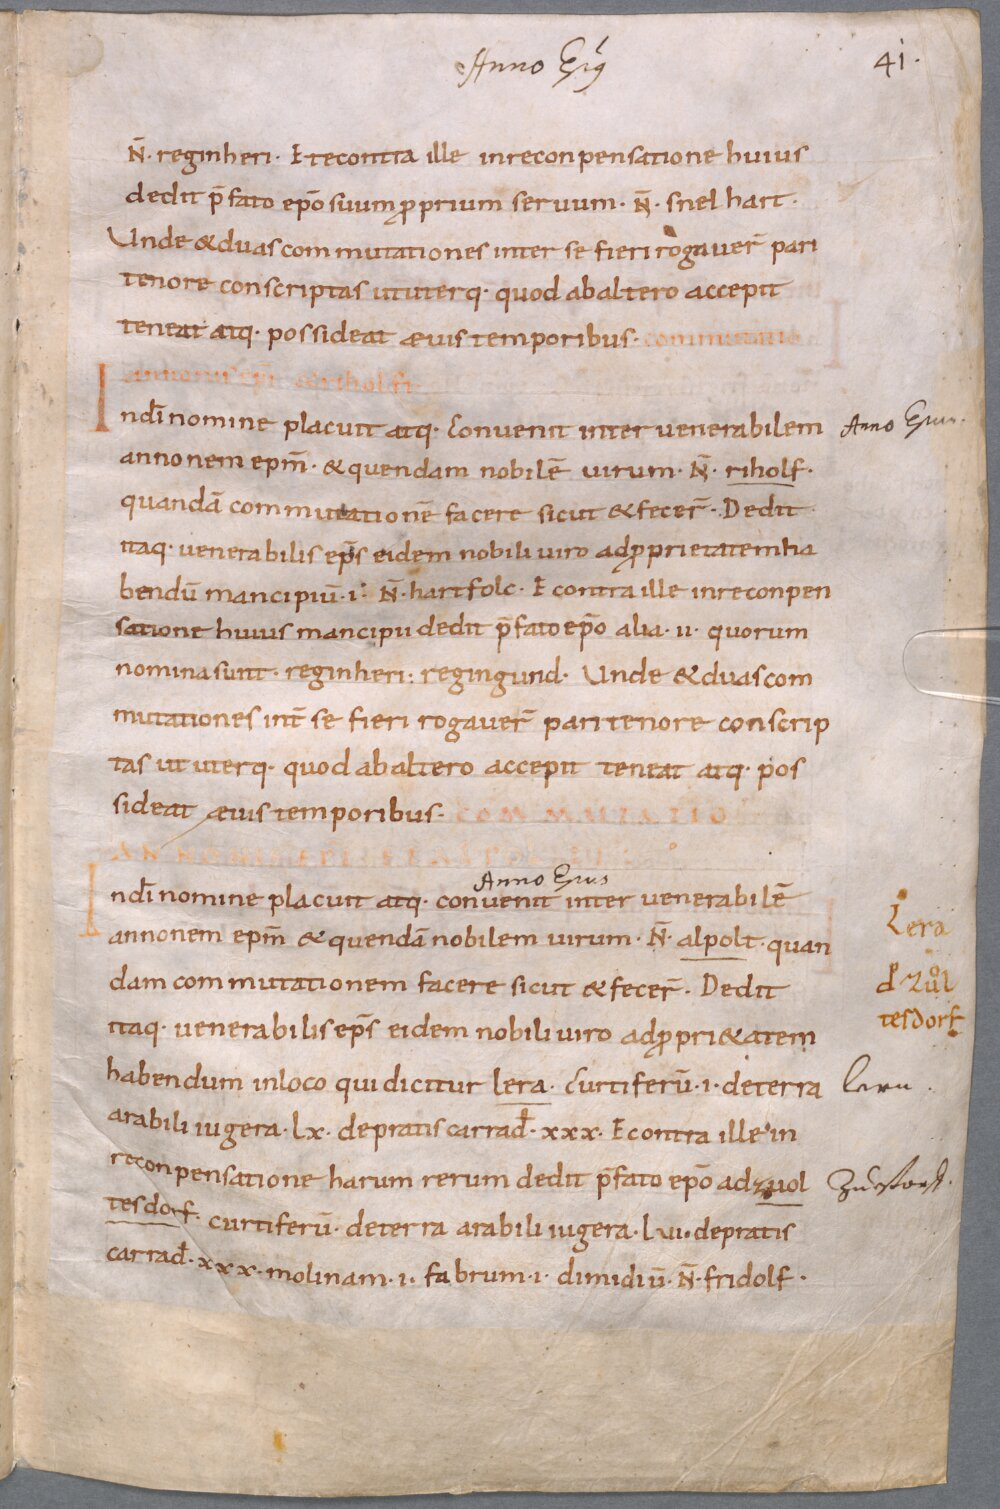 Anno Epī
41.
N̄. reginheri. Et econtra ille inreconpensatione huius
dedit p̄fato ep̄o suum ꝓprium seruum. N̄. snelhart.
Unde & duas commutationes inter se fieri rogauer̄ pari
tenore conscriptas ut uterq. quod ab altero accepit
teneat atq. possideat æuis temporibus. commutatio
annonis ep̄i & riholfi
Indī nomine placuit atq. Conuenit inter uenerabilem
Anno
annonem epm̄. & quendam nobilē uirum. N̄. riholf.
quandā commutationē facere sicut & fecer̄. Dedit
itaq. uenerabilis ep̄s eidem nobili uiro ad ꝓprietatem ha
bendū mancipiū .i. N̄. hartfolc. E contra ille in reconpen
satione huius mancipii dedit p̄fato ep̄o alia .ii. quorum
nomina sunt. reginheri: regingund. Unde & duas com
mutationes int̄ se fieri rogauer̄ pari tenore conscrip
tas ut uterq. quod ab altero accepit teneat atq. pos
sideat æuis temporibus. COMMUTATIO
Anno
Indī nomine placuit atq. conuenit inter uenerabilē
annonem epm̄ & quendā nobilem uirum. N̄. alpolt. quan
Lera
dam commutationem facere sicut & fecer̄. Dedit
đ Zůl
itaq. uenerabilis ep̄s eidem nobili uiro ad ꝓpri&atem
tesdorf
habendum in loco qui dicitur lera. Curtiferū .i. de terra
lern.
arabili iugera. lx. de pratis carrađ. xxx. E contra ille in
reconpensatione harum rerum dedit p̄fato ep̄o ad zuol
tesdorf. curtiferū. de terra arabili iugera. lvi. de pratis
carrađ. xxx. molinam .i. fabrum .i. dimidiū. N̄. fridolf.